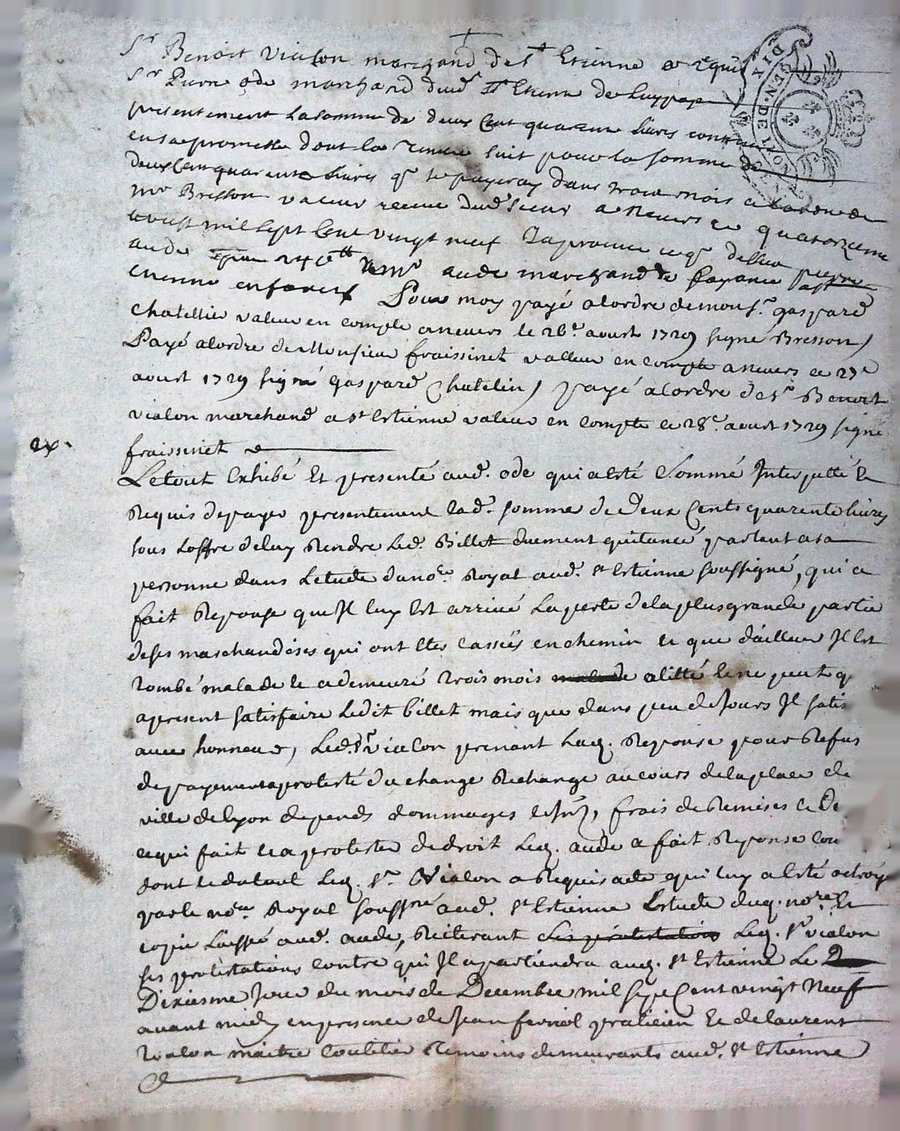 Sr Benoist Vialon marchand de st Etienne a requis
Sr Pierre ode marchand dud. st Etienne de luy payer
presentement la somme de deux Cent quarente livres contenue
en sa promesse dont la teneur suit pour la somme de
deux Cent quarente livres que je payeray dans trois mois a l'ordre de
mr Bresson valeur receue dud. sieur a nevers ce quatorzieme
aoust mil sept Cent vingt neuf
aude 240tt aude marchand de fayance
Pour moy payé a lordre de monsr. gaspard
Chatellin valeur en compte a nevers le 26e. aoust 1729 signé Bresson /
Payé a lordre de Monsieur fraissinet valleur en compte a nevers ce 27e
aoust 1729 signé gaspard Chatelin / payé a lordre de sr. Benoist
vialon marchand a st Estienne valeur en compte ce 28e. aoust 1729 signé
fraissinet
Le tout Exhibé Et presenté aud. ode qui a esté sommé Interpellé Et
Requis de payer presentement lad. somme de deux Cents quarente livres
sous Loffre de luy Rendre Led. Billet duement quitancé parlant a sa
personne dans Letude du nore. Royal aud. st Estienne soussigné, qui a
fait Reponse que Jl luy Est arrivé La perte de la plus grande partie
de ses marchandises qui ont Etes cassées en chemin et que d'ailleur Jl Est
tombé malade et a demeuré trois mois malade alitté et ne peut q
a present satisfaire Ledit billet mais que dans peu de Jours Jl satis
avec honneur, Led. sr vialon prenant Laq. Reponse pour Refus
de payement a protesté du change Rechange au cours de la place de
ville de lyon depends dommages frais de Remises
ce qui fait et a protester de droit Leq. aude a fait Reponse
dont et du tout Leq. sr. Vialon a Requis acte qui luy a Esté octroyé
par le nore. Royal soussné aud. st Estienne Estude duq. nore. Et
copie Laissé aud. aude, Reiterant Les protestations Leq. sr vialon
ses protestations contre qui Jl apartiendra auq. st Estienne Le
Dixiesme Jour du mois de Decembre mil sept Cent vingt Neuf
avant midy en presence de Jean ferriol praticien Et de laurent
vialon maitre Temoins demeurants aud. st Estienne
GEN. DE
DIX DEN.